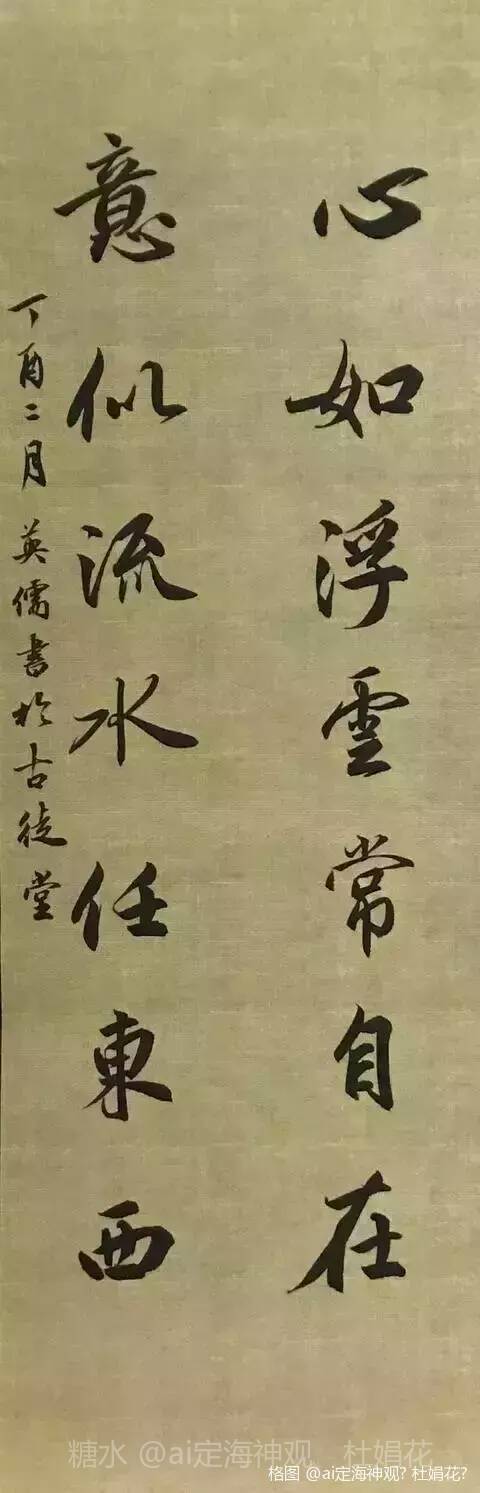 心如浮雲常自在
意似流水任東西
丁酉二月 英儒書於古徒堂
糖水 @ai定海神观 杜娟花
格图 @ai定海神观? 杜娟花?